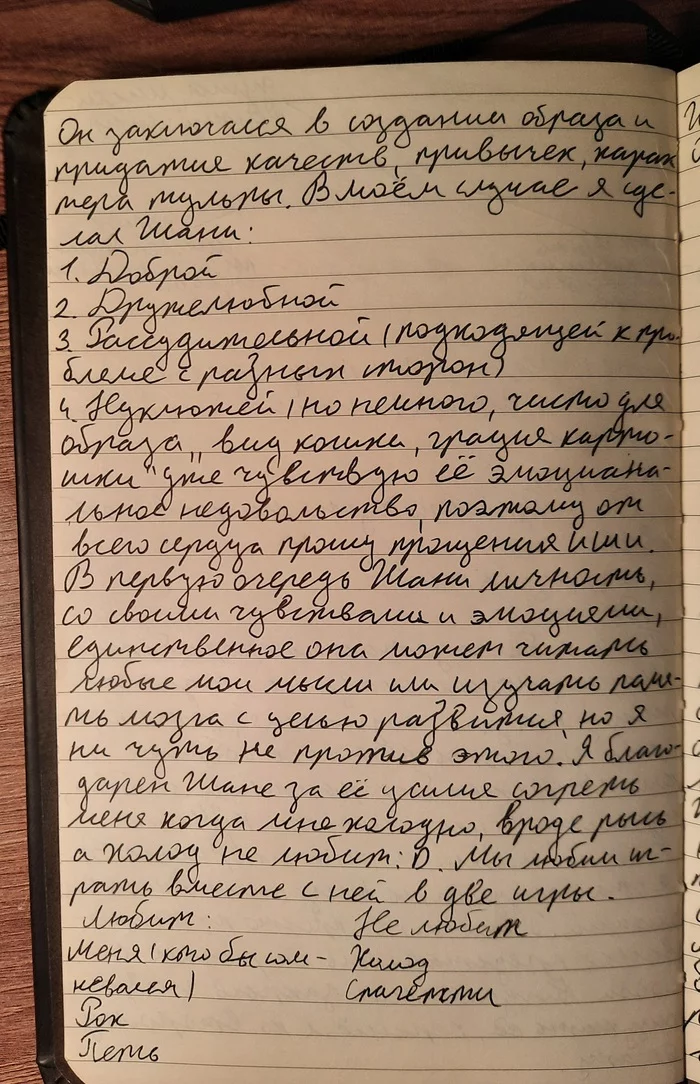 Он заключался в создании образа и
придатие качеств, привычек, харак
тера тульпы. В моём случае я сде-
лал Шани:
1. Доброй
2. Дружелюбной
3. Рассудительной (подходящей к про-
блеме с разных сторон)
4. Неуклюжей (но немного, чисто для
образа „вид кошки, грация карто-
шки" уже чувствую её эмоциона-
льное недовольство, поэтому от
всего сердца прошу прощения Ши.
В первую очередь Шани личность,
со своими чувствами и эмоциями,
единственное она может читать
любые мои мысли или изучать памя-
ть мозга с целью развития, но я
ни чуть не против этого. Я благо-
дарен Шане за её усилия согреть
меня когда мне холодно, вроде рысь
а холод не любит :D. Мы любим иг-
рать вместе с ней в две игры.
Любит: Не любит
Меня (кто бы сом- Холод
невался) Спагетти
Рок
Петь